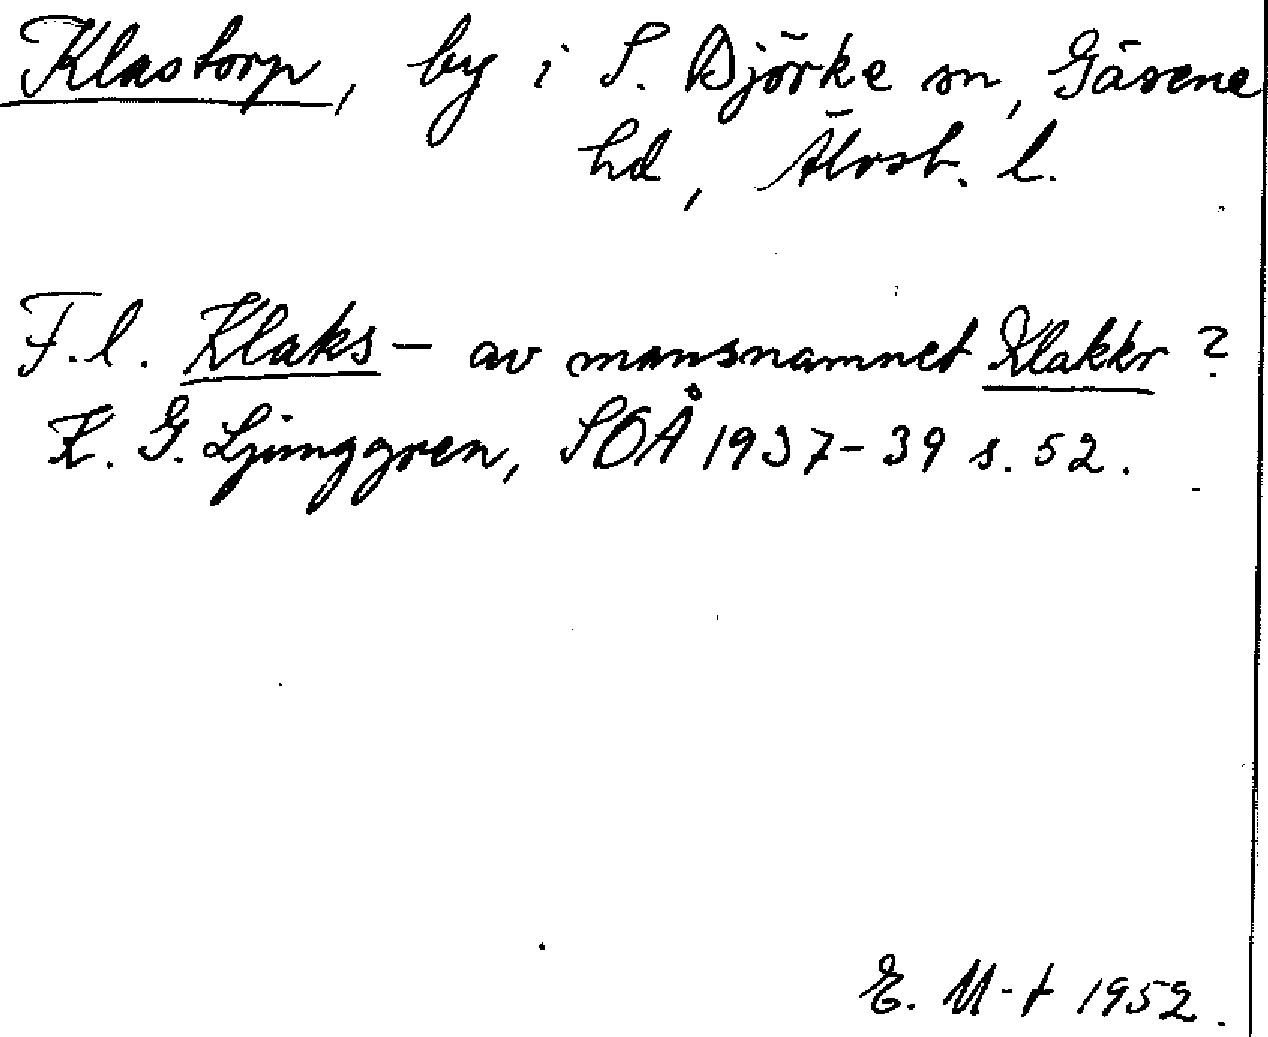 Klastorp, by i S. Björke sn, Gäsene
hd, Älvsb. l.
F.l. Klaks- av mansnamnet Klakkr?
K. G. Ljunggren, SOÅ 1937-39 s. 52.
E. M-t 1952.